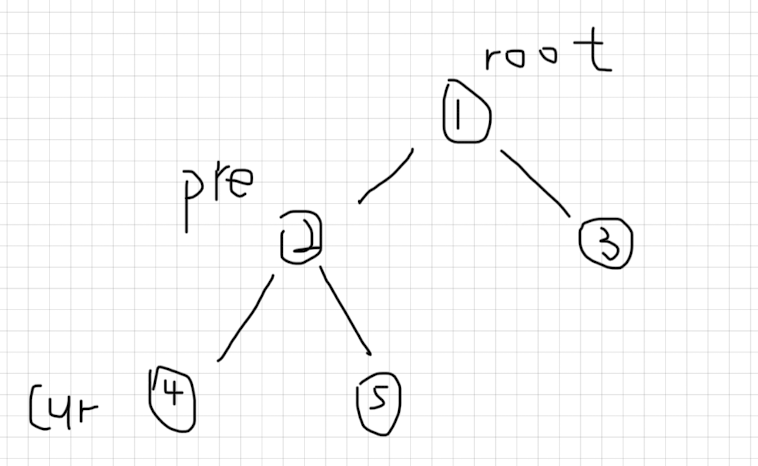 root
1
pre
2
3
cur
4
5